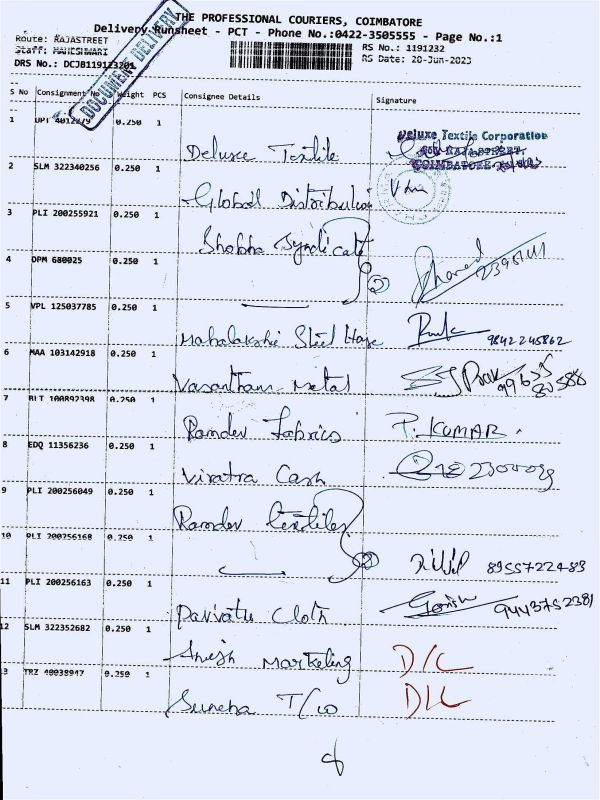 THE PROFESSIONAL COURIERS, COIMBATORE
Delivery Runsheet - PCT - Phone No.:0422-3505555 - Page No.:1
Route: RAJASTREET
RS No.: 1191232
Staff: MAHESHWARI
RS Date: 20-Jun-2023
DRS No.: DCJB119123201
DOCUMENT DELIVERY
S No Consignment No Weight PCS Consignee Details Signature
1 0.250 1 Deluxe Textile
Deluxe Textile Corporation
2 SLM 322340256 0.250 1 Global Distribution
3 PLI 200255921 0.250 1 Shobha Syndicate
4 OPM 680025 0.250 1
5 VPL 125037785 0.250 1 Mahalakshmi Steel House 9842245862
6 MAA 103142918 0.250 1 Vasantham Metal
7 BLT 100892398 0.250 1 Ramdev Fabrics P. KUMAR.
8 EDQ 11356236 0.250 1 Viratra Cash
9 PLI 200256049 0.250 1 Ramdev textiles
10 PLI 200256168 0.250 1 8955722483
11 PLI 200256163 0.250 1 Cloth 9443752381
12 SLM 322352682 0.250 1 Marketing D/L
13 TRZ 40038947 0.250 1 D/L